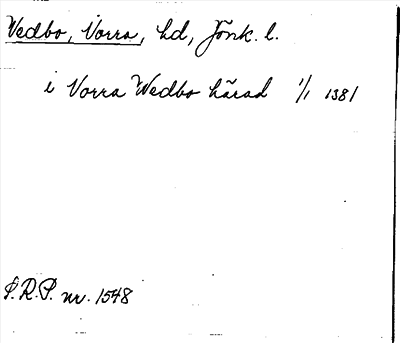 Vedbo, Norra, hd, Jönk. l.
i Norra Wedbo härad 1/1 1381
S.R.P. nr. 1548